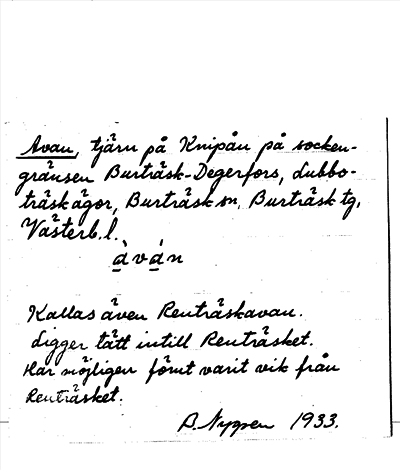 Avan, tjärn på Knipån på socken-
gränsen Burträsk-Degerfors, Lubbo-
träsk ägor, Burträsk sn, Burträsk tg,
Västerb. l.
àván
Kallas även Renträskavan.
Ligger tätt intill Renträsket.
Har möjligen förut varit vik från
Renträsket.
B. Nygren 1933.